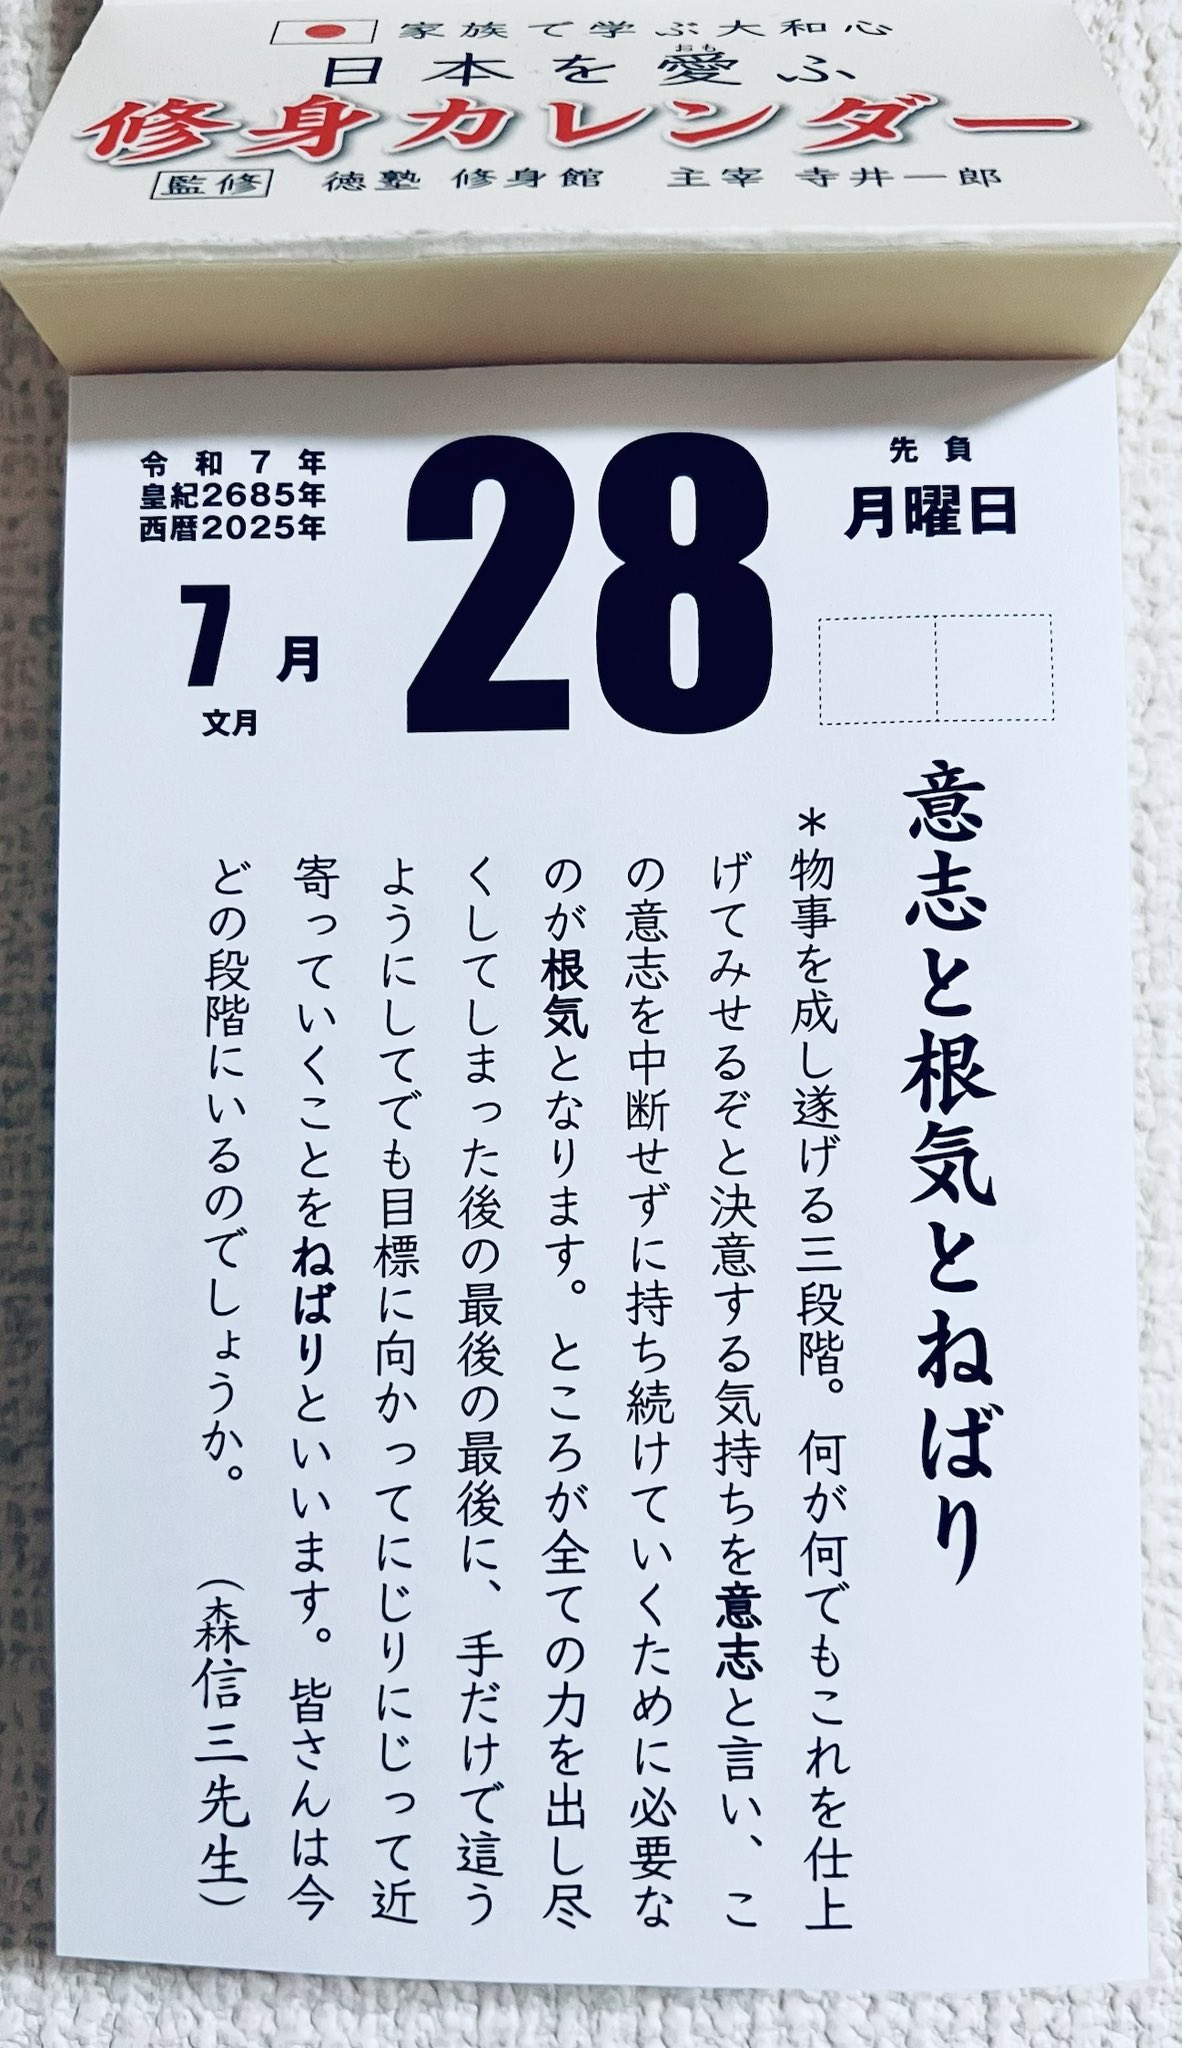 家族で学ぶ大和心
おも
日本を愛ふ
修身カレンダー
監修 徳塾 修身館 主宰 寺井一郎
令和7年
皇紀2685年
西暦2025年
7月
文月
28
先負
月曜日
意志と根気とねばり
＊物事を成し遂げる三段階。何が何でもこれを仕上
げてみせるぞと決意する気持ちを意志と言い、こ
の意志を中断せずに持ち続けていくために必要な
のが根気となります。ところが全ての力を出し尽
くしてしまった後の最後の最後に、手だけで這う
ようにしてでも目標に向かってにじりにじって近
寄っていくことをねばりといいます。皆さんは今
どの段階にいるのでしょうか。
（森信三先生）